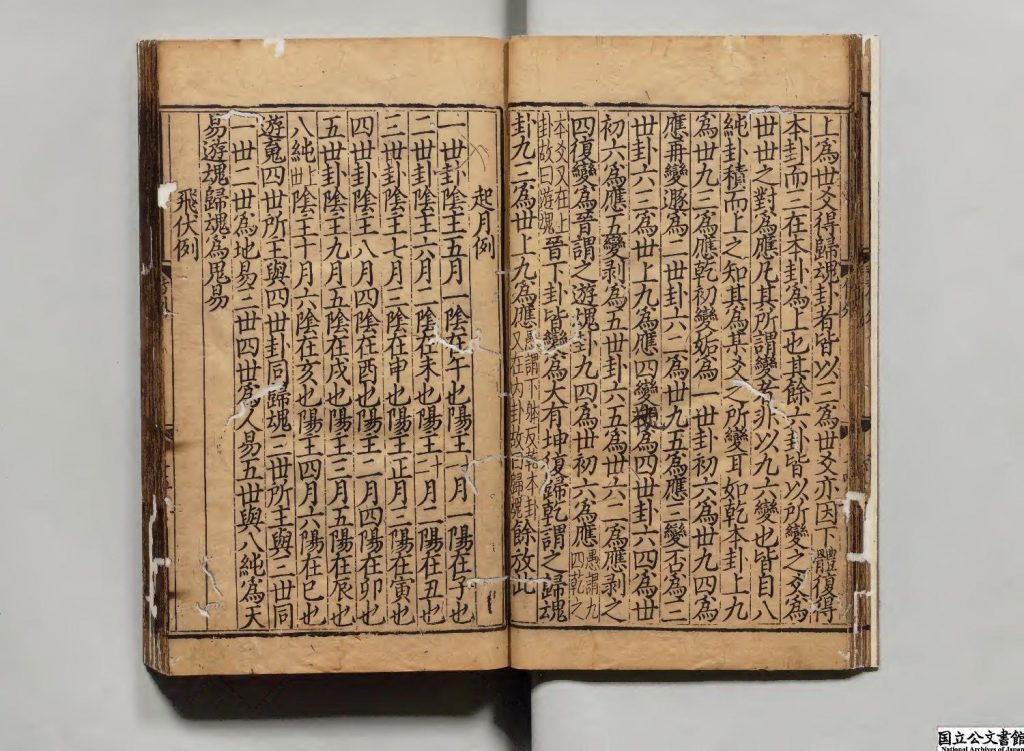 上爲世爻得歸魂卦者皆以三爲世爻亦因下體復得
本卦而三在本卦爲上也其餘六卦皆以所變之爻爲
世世之對爲應凡其所謂變者非以九六變也皆自八
純卦積而上之知其爲某爻之所變耳如乾本卦上九
爲世九三爲應乾初變姤爲一世卦初六爲世九四爲
應再變遯爲二世卦六二爲世九五爲應三變否爲三
世卦六三爲世上九爲應四變觀爲四世卦六四爲世
初六爲應五變剥爲五世卦六五爲世六二爲應剥之
四復變爲晉謂之遊魂卦九四爲世初六爲應愚謂九四乾之
本爻又在上卦故曰游魂晉下卦皆變爲大有坤復歸乾謂之歸魂
卦九三爲世上九爲應愚謂下體反乾本卦又在内卦故曰歸魂餘放此
起月例
一世卦陰主五月一陰在午也陽主十一月一陽在子也
二世卦陰主六月二陰在未也陽主十二月二陽在丑也
三世卦陰主七月三陰在申也陽主正月三陽在寅也
四世卦陰主八月四陰在酉也陽主二月四陽在卯也
五世卦陰主九月五陰在戌也陽主三月五陽在辰也
八純上世陰主十月六陰在亥也陽主四月六陽在巳也
遊魂四世所主與四世卦同歸魂三世所主與三世同
一世二世爲地易三世四世爲人易五世與八純爲天
易遊魂歸魂爲鬼易
飛伏例
国立公文書館
National Archives of Japan